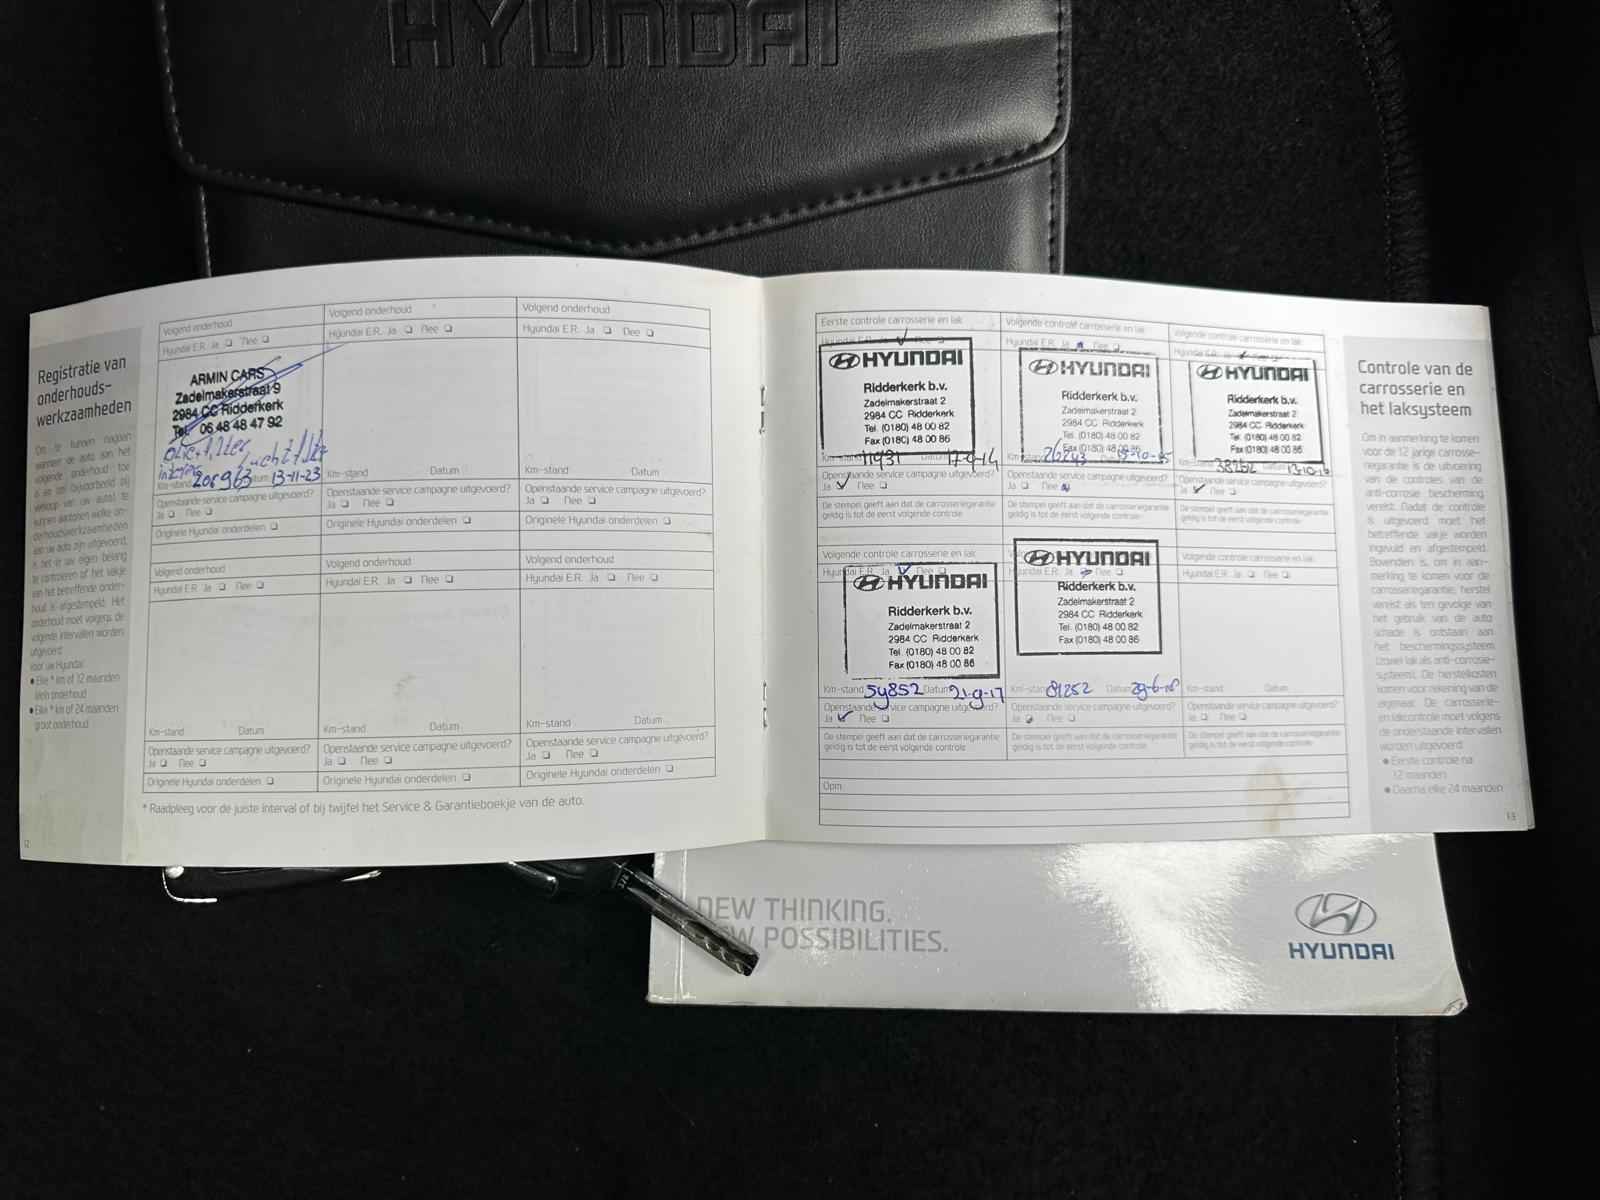 HYUNDAI
Registratie van
onderhouds-
werkzaamheden
Om te kunnen nagaan
wanneer de auto aan het
volgende onderhoud toe
is en om (bijvoorbeeld bij
verkoop van uw auto) te
kunnen aantonen welke on-
derhoudswerkzaamheden
aan uw auto zijn uitgevoerd,
is het in uw eigen belang
te controleren of het vakje
van het betreffende onder-
houd is afgestempeld. Het
onderhoud moet volgens de
volgende intervallen worden
uitgevoerd
voor uw Hyundai:
● Elke * km of 12 maanden
klein onderhoud
● Elke * km of 24 maanden
groot onderhoud
12
Volgend onderhoud
Hyundai E.R. Ja ❏ Nee ❏
ARMIN CARS
Zadelmakerstraat 9
2984 CC Ridderkerk
Tel. 06 48 48 47 92
Km-stand Datum 13-11-23
Openstaande service campagne uitgevoerd?
Ja ❏ Nee ❏
Originele Hyundai onderdelen ❏
Volgend onderhoud
Hyundai E.R. Ja ❏ Nee ❏
Km-stand Datum
Openstaande service campagne uitgevoerd?
Ja ❏ Nee ❏
Originele Hyundai onderdelen ❏
Volgend onderhoud
Hyundai E.R. Ja ❏ Nee ❏
Km-stand Datum
Openstaande service campagne uitgevoerd?
Ja ❏ Nee ❏
Originele Hyundai onderdelen ❏
Volgend onderhoud
Hyundai E.R. Ja ❏ Nee ❏
Km-stand Datum
Openstaande service campagne uitgevoerd?
Ja ❏ Nee ❏
Originele Hyundai onderdelen ❏
Volgend onderhoud
Hyundai E.R. Ja ❏ Nee ❏
Km-stand Datum
Openstaande service campagne uitgevoerd?
Ja ❏ Nee ❏
Originele Hyundai onderdelen ❏
Volgend onderhoud
Hyundai E.R. Ja ❏ Nee ❏
Km-stand Datum
Openstaande service campagne uitgevoerd?
Ja ❏ Nee ❏
Originele Hyundai onderdelen ❏
* Raadpleeg voor de juiste interval of bij twijfel het Service & Garantieboekje van de auto.
Eerste controle carrosserie en lak
HYUNDAI
Ridderkerk b.v.
Zadelmakerstraat 2
2984 CC Ridderkerk
Tel. (0180) 48 00 82
Fax (0180) 48 00 86
Km-stand 11931 Datum 17-9-14
Openstaande service campagne uitgevoerd?
Ja ✓ Nee ❏
De stempel geeft aan dat de carrosseriegarantie
geldig is tot de eerst volgende controle
Volgende controle carrosserie en lak
Hyundai E.R. Ja Nee ❏
HYUNDAI
Ridderkerk b.v.
Zadelmakerstraat 2
2984 CC Ridderkerk
Tel. (0180) 48 00 82
Fax (0180) 48 00 86
Km-stand 26243
Openstaande service campagne uitgevoerd?
Ja ❏ Nee
De stempel geeft aan dat de carrosseriegarantie
geldig is tot de eerst volgende controle
Volgende controle carrosserie en lak
HYUNDAI
Ridderkerk b.v.
Zadelmakerstraat 2
2984 CC Ridderkerk
Tel. (0180) 48 00 82
Fax (0180) 48 00 86
Km-stand 38252 Datum
Openstaande service campagne uitgevoerd?
Ja ✓ Nee ❏
De stempel geeft aan dat de carrosseriegarantie
geldig is tot de eerst volgende controle
Volgende controle carrosserie en lak
Hyundai E.R. Ja ✓ Nee ❏
HYUNDAI
Ridderkerk b.v.
Zadelmakerstraat 2
2984 CC Ridderkerk
Tel. (0180) 48 00 82
Fax (0180) 48 00 86
Km-stand 59852 Datum 21-9-17
Openstaande service campagne uitgevoerd?
Ja ✓ Nee ❏
De stempel geeft aan dat de carrosseriegarantie
geldig is tot de eerst volgende controle
HYUNDAI
Hyundai E.R. Ja Nee ❏
Ridderkerk b.v.
Zadelmakerstraat 2
2984 CC Ridderkerk
Tel. (0180) 48 00 82
Fax (0180) 48 00 86
Km-stand 81252 Datum
Openstaande service campagne uitgevoerd?
Ja Nee ❏
De stempel geeft aan dat de carrosseriegarantie
geldig is tot de eerst volgende controle
Volgende controle carrosserie en lak
Hyundai E.R. Ja ❏ Nee ❏
Km-stand Datum
Openstaande service campagne uitgevoerd?
Ja ❏ Nee ❏
De stempel geeft aan dat de carrosseriegarantie
geldig is tot de eerst volgende controle
Opm.
Controle van de
carrosserie en
het laksysteem
Om in aanmerking te komen
voor de 12 jarige carrosse-
riegarantie is de uitvoering
van de controles van de
anti-corrosie bescherming
vereist. Nadat de controle
is uitgevoerd moet het
betreffende vakje worden
ingevuld en afgestempeld.
Bovendien is, om in aan-
merking te komen voor de
carrosseriegarantie, herstel
vereist als ten gevolge van
het gebruik van de auto
schade is ontstaan aan
het beschermingssysteem
(zowel lak als anti-corrosie-
systeem). De herstelkosten
komen voor rekening van de
eigenaar. De carrosserie-
en lakcontrole moet volgens
de onderstaande intervallen
worden uitgevoerd:
● Eerste controle na
12 maanden
● Daarna elke 24 maanden
13
NEW THINKING.
NEW POSSIBILITIES.
HYUNDAI